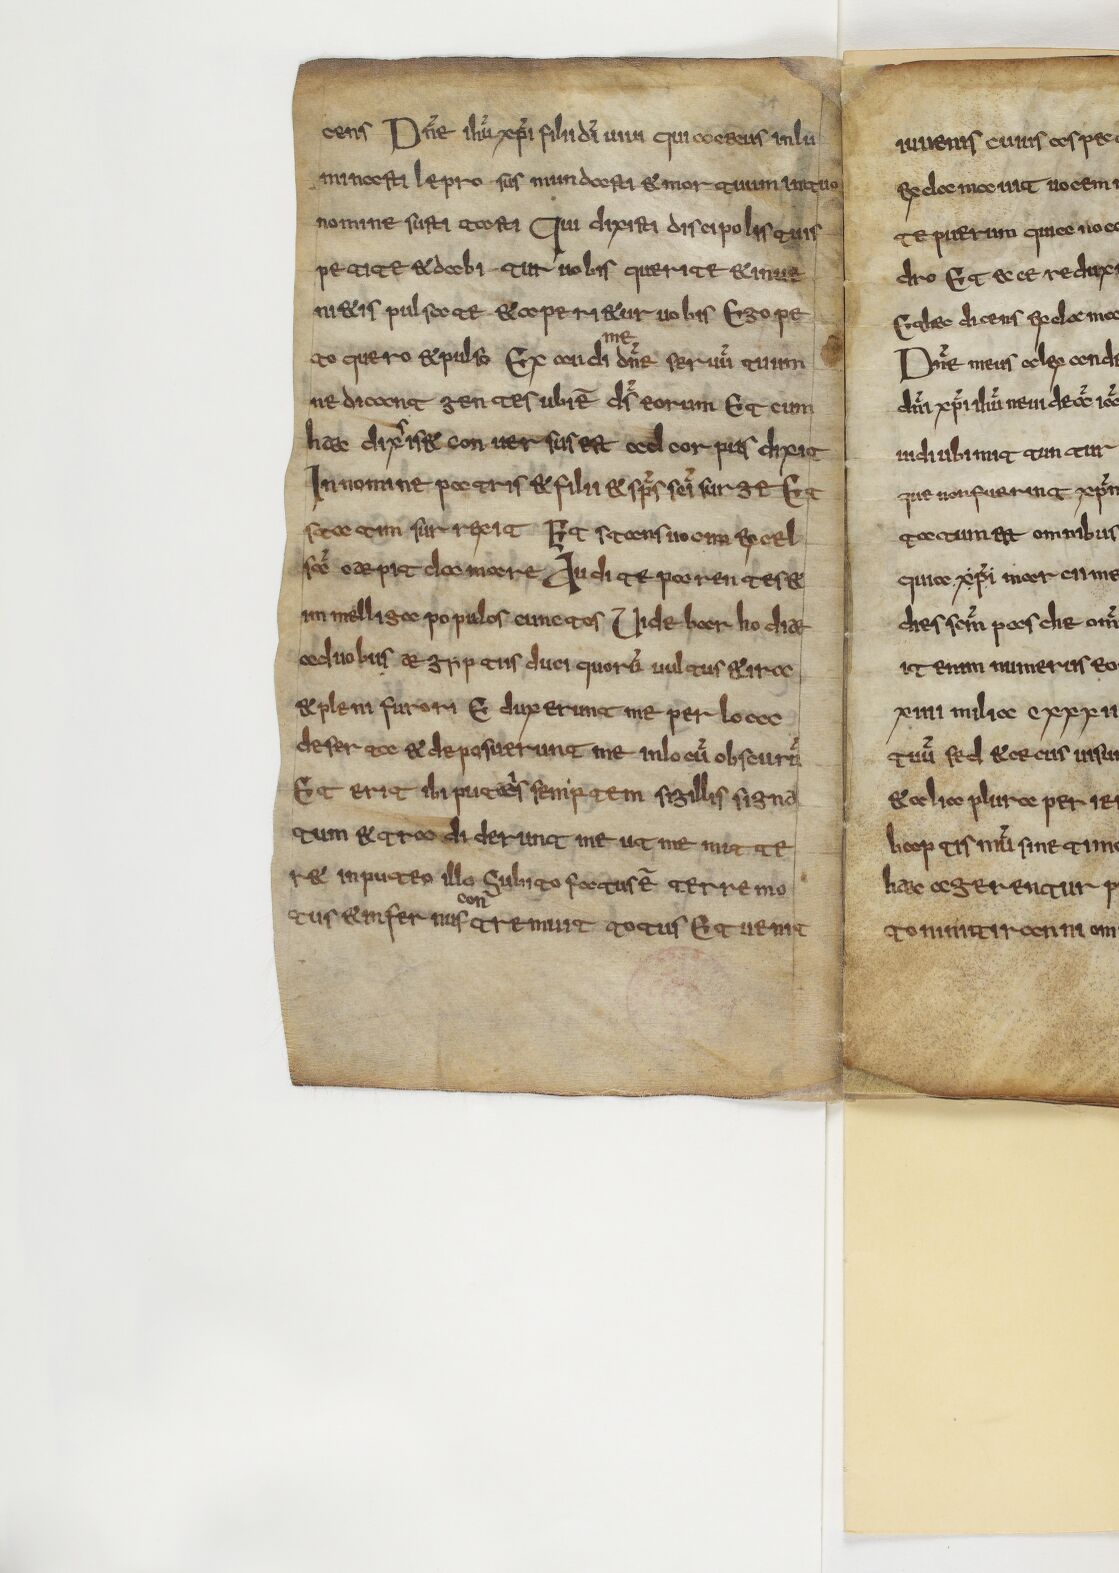 cens Dn̄e ihū xp̄i filii dī uiui qui cecus inlu
minasti leprosus mundasti & mortuum in tuo
nomine sustitasti Qui dixisti discipolis tuis
petite & dabitur uobis querite & inue
ni&is pulsate & aperi&ur uobis Ego pe
to quero & pulso Exaudi me dn̄e seruū tuum
ne dicant gentes ubi ē ds̄ eorum Et cum
haec dixiss& conuersus est ad corpus dixit
In nomine patris & filii & sp̄s sc̄i surge Et
statim surrexit Et stans uocem excel
sā caepit clamare Audite parentes &
populos cunctos Videbar hodiae
a duobus aegyptus duci quorū uultus & ira
& pleni furori Et duxerunt me per loca
deserta & deposuerunt me in locū obscurū
Et erit ibi puteūs semptem sigillis signa
tum & tradiderunt me ut me mitte
r& in puteo illo Subito factus ē terremo
tus & infernus contremuit totus Et uenit
iuuenis cuius aspec
exclamauit uocem
te puerum quia uoca
dro Et ecce reduxi
Et haec dicens exclama
Dn̄e meus
dn̄i xp̄i ihū
iudi ubi mittuntur
que non fuerint xp̄
tatum est omnibus
quia xp̄i
dies scm̄ pasche om̄
it enim numerus eo
xiiii milia cxxxii
tuū sed & cecus uisu
& alia plura per
baptismū sine timo
haec agerentur p
to nuntiarent